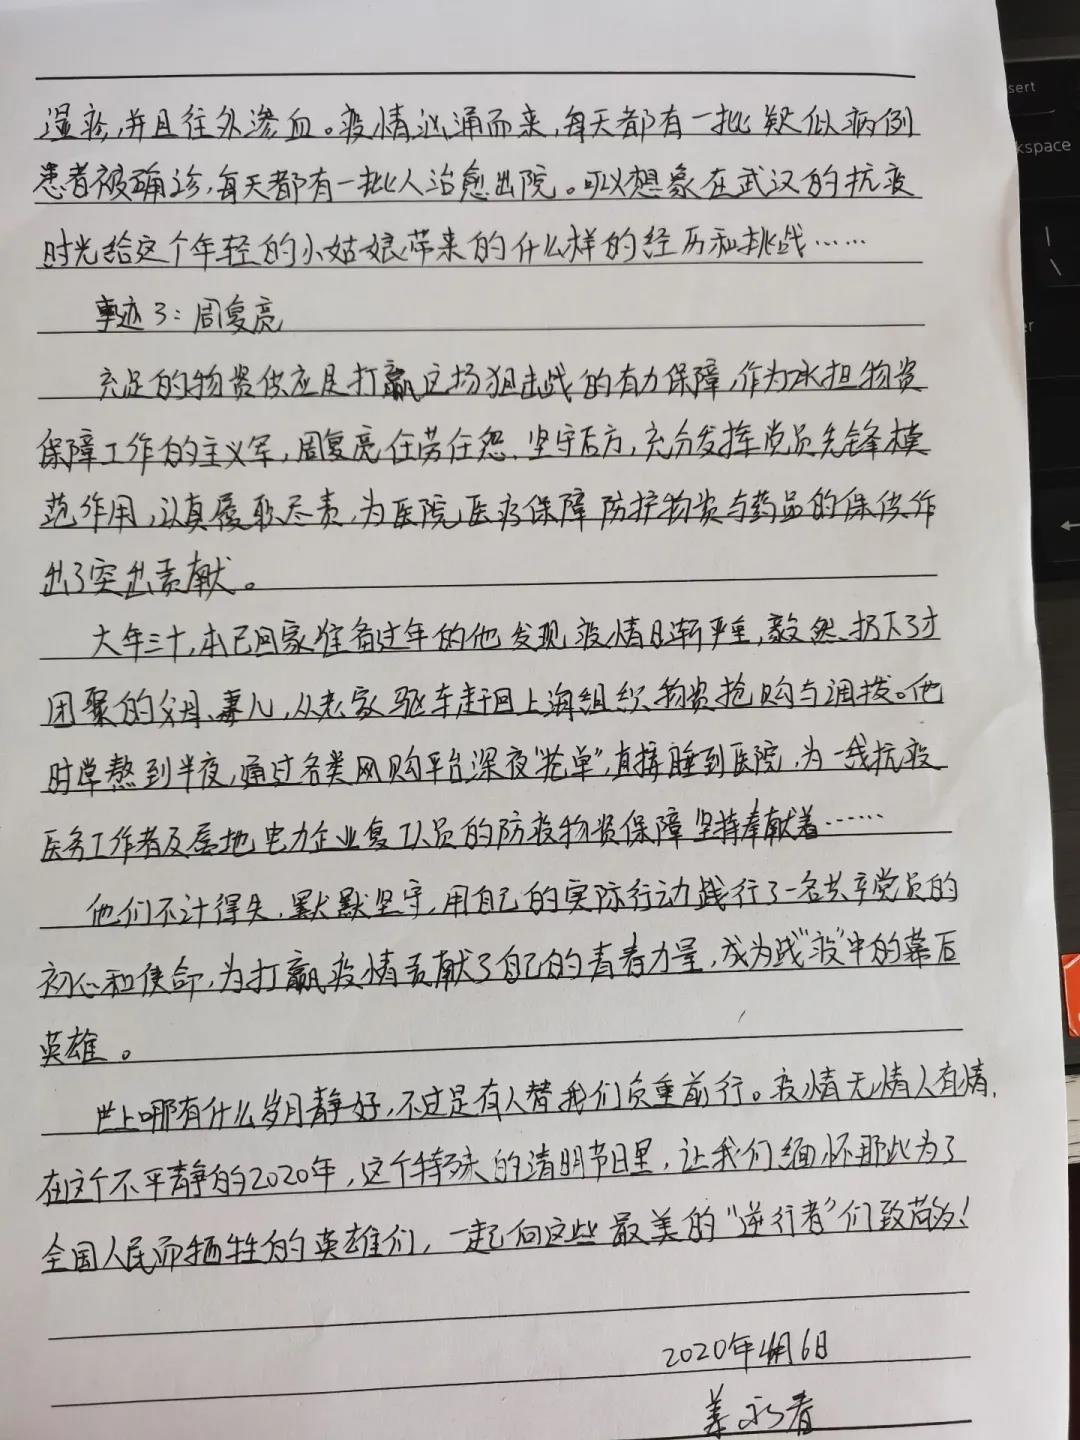 湿疹,并且往外渗血。疫情汹涌而来,每天都有一批疑似病例
患者被确诊,每天都有一批人治愈出院。可以想象在武汉的抗疫
时光给这个年轻的小姑娘带来的什么样的经历和挑战……
事迹3:周复亮
充足的物资供应是打赢这场狙击战的有力保障,作为承担物资
保障工作的主义军,周复亮任劳任怨、坚守后方,充分发挥党员先锋模
范作用,认真履职尽责,为医院医疗保障防护物资与药品的保供作
出了突出贡献。
大年三十,本已回家准备过年的他发现疫情日渐严重,毅然扔下了才
团聚的父母、妻儿,从老家驱车赶回上海组织物资抢购与调拨。他
时常熬到半夜,通过各类网购平台深夜"抢单",直接睡到医院,为一线抗疫
医务工作者及属地电力企业复工人员的防疫物资保障坚持奉献着……
他们不计得失,默默坚守,用自己的实际行动践行了一名共产党员的
初心和使命,为打赢疫情贡献了自己的青春力量,成为战"疫"中的幕后
英雄。
世上哪有什么岁月静好,不过是有人替我们负重前行。疫情无情人有情,
在这个不平静的2020年,这个特殊的清明节日里,让我们缅怀那些为了
全国人民而牺牲的英雄们,一起向这些最美的"逆行者"们致敬!
2020年4月6日
姜永春
sert
kspace
|
\
er
←